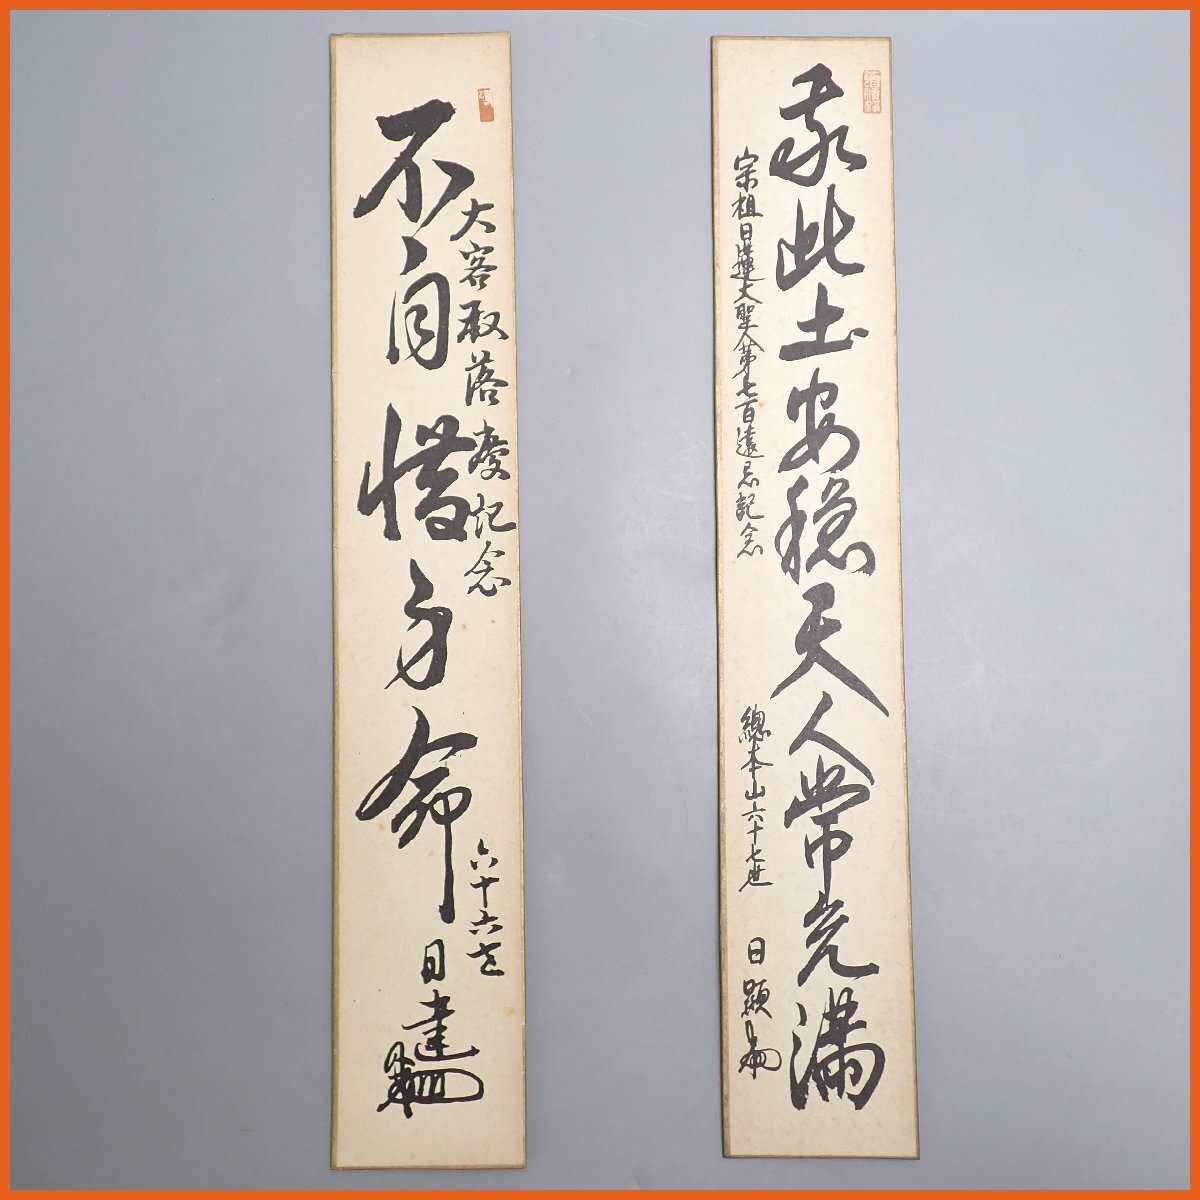 我此土安穏天人常充満
宗祖日蓮大聖人第七百遠忌記念
總本山六十七世
日顕
不自惜身命
大客殿落慶記念
六十六世
日達